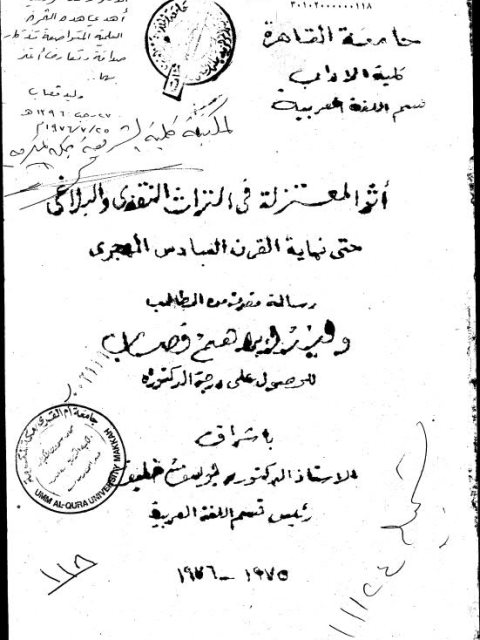 ٣٠١٠٢٠٠٠٠٠٠١١٨
جامعة القاهرة
كلية الآداب
قسم اللغة العربية
صداقة وتعارف أعتز
بها..
وليد قصاب
١٣٩٦هـ
١٩٧٦/٧/٢٥م
لمكتبة كلية الشريعة بمكة المكرمة
أثر المعتزلة في التراث النقدي والبلاغي
حتى نهاية القرن السادس الهجري
رسالة مقدمة من الطالب
وليد إبراهيم قصاب
للحصول على درجة الدكتوراه
باشراف
الاستاذ الدكتور يوسف خليف
رئيس قسم اللغة العربية
١٩٧٥ - ١٩٧٦
جامعة أم القرى
UMM AL-QURA UNIVERSITY MAKKAH
١١٨
١١١٢٤